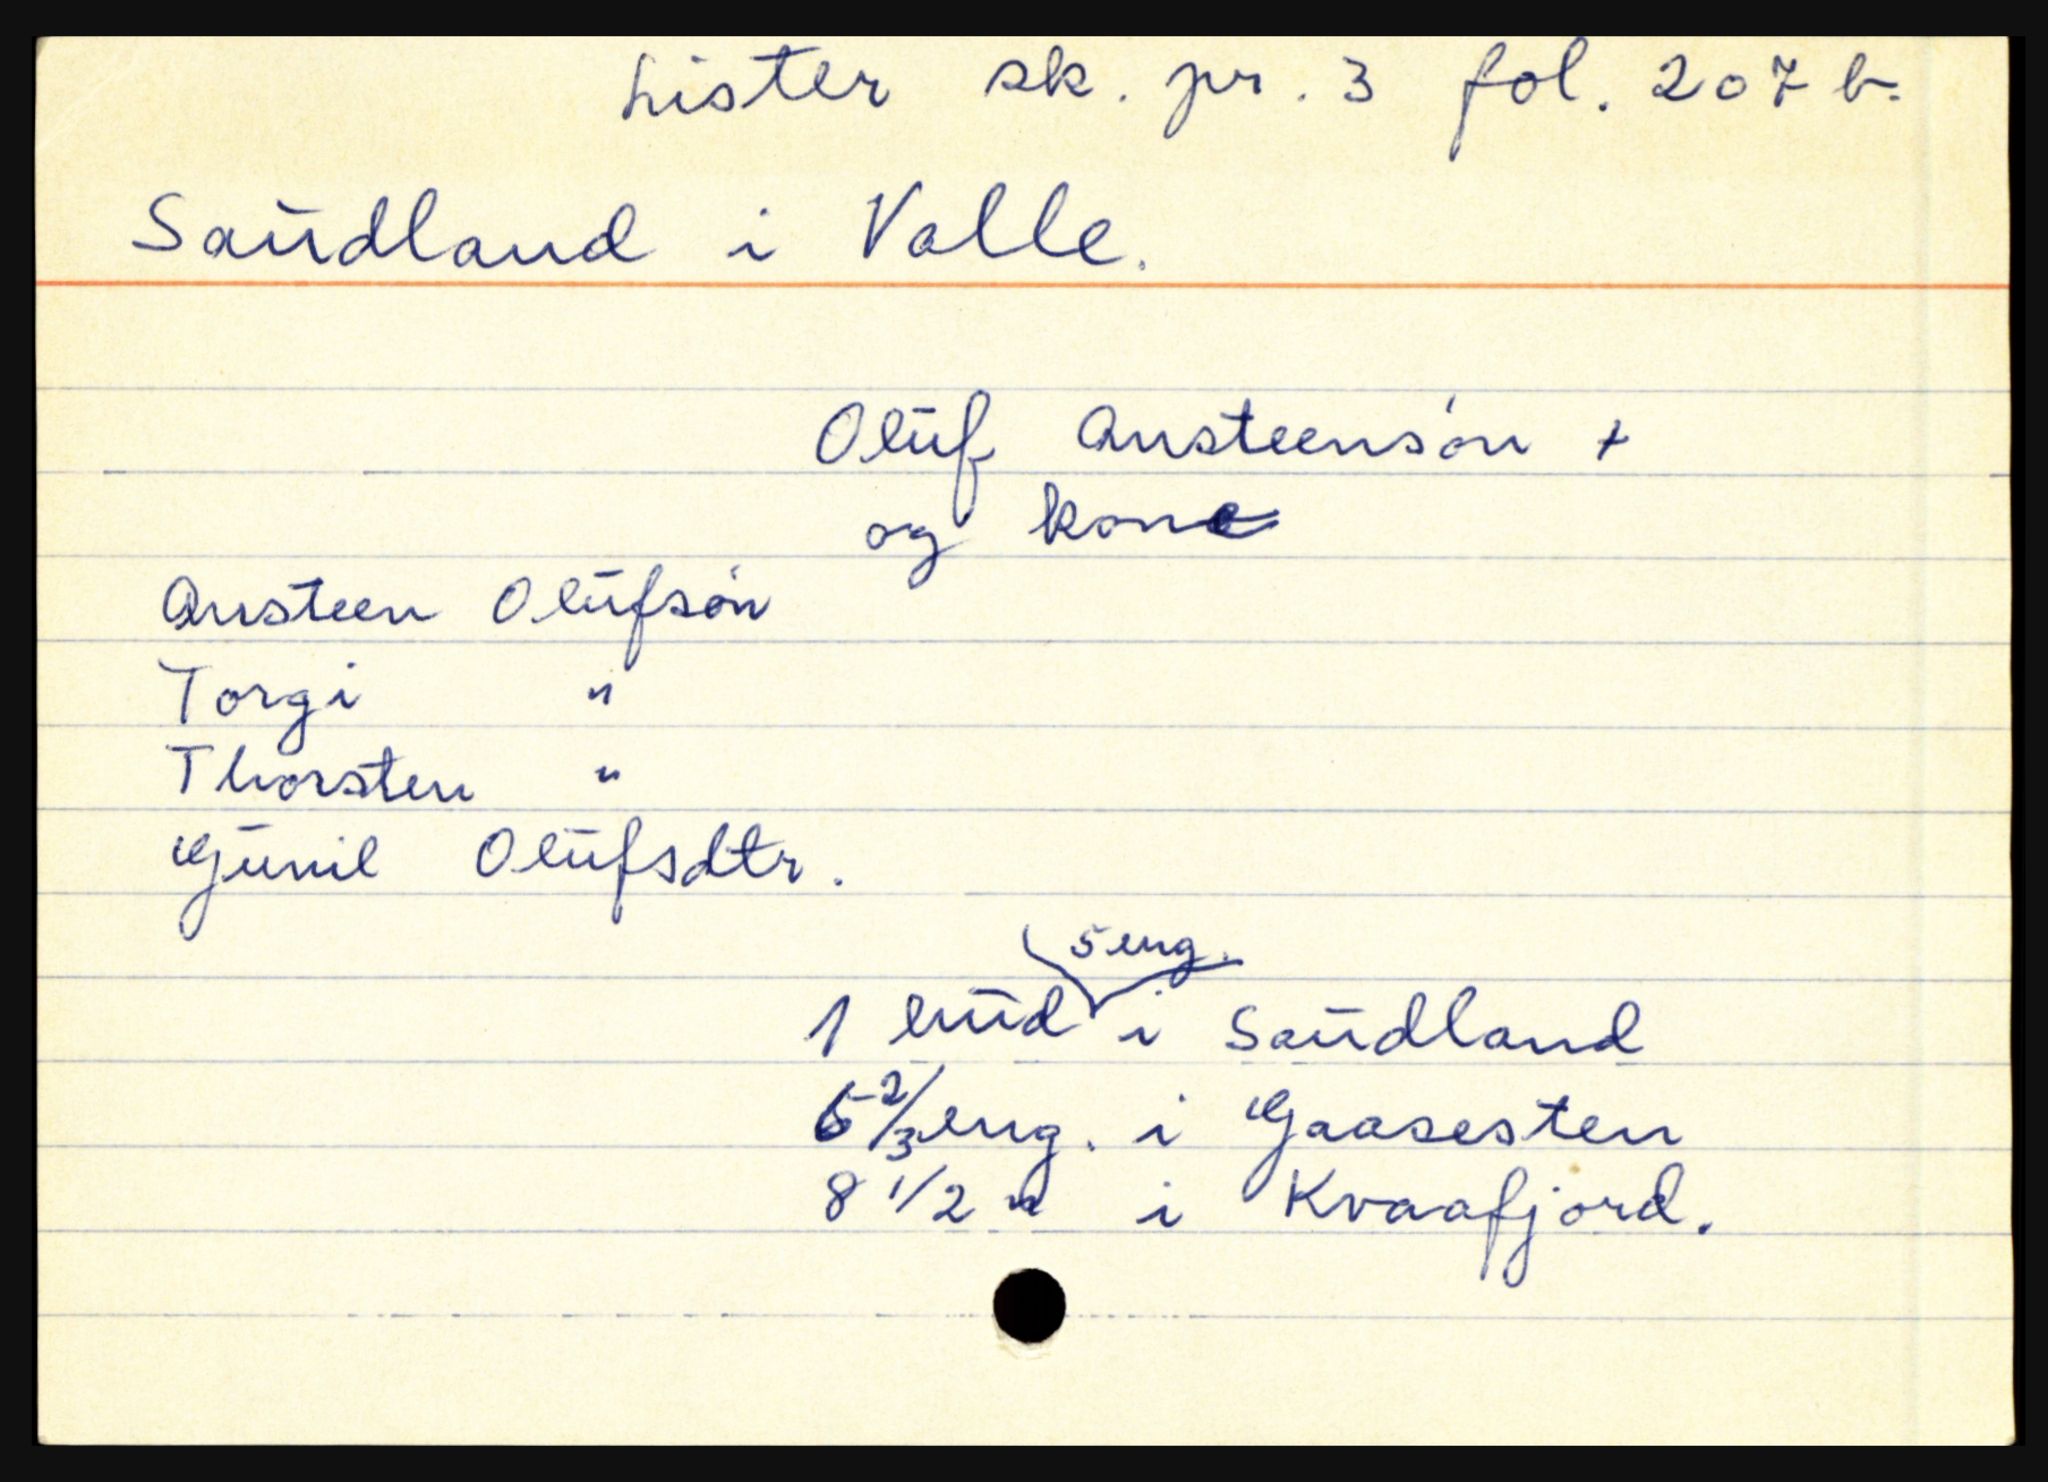 Lister sk. pr. 3 fol. 207 b.
Saudland i Valle.
Oluf Austeensøn +
og kone
Austeen Olufsøn
Torgi "
Thorsten "
Gunil Olufsdtr.
5 eng.
1 hud i Saudland
6 2/3 eng. i Gaasesten
8 1/2 " i Kvaafjord.